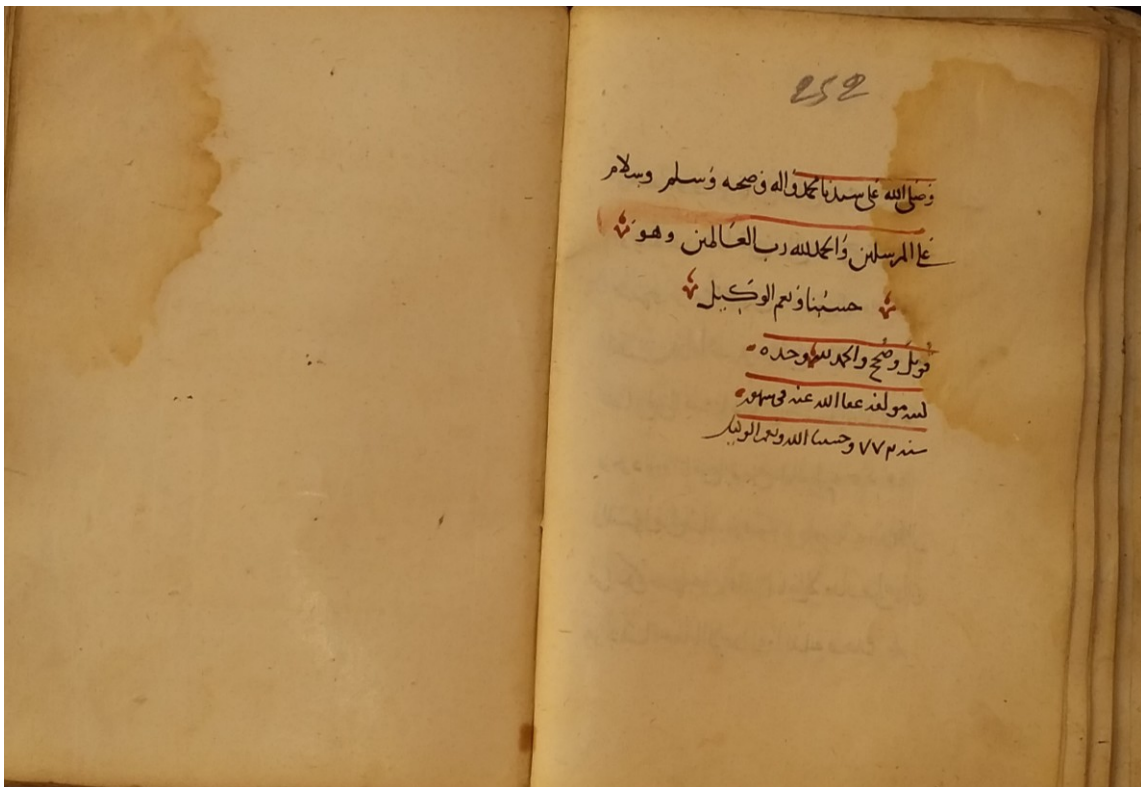 252
وصلى الله على سيدنا محمد واله وصحبه وسلم وسلام
على المرسلين والحمد لله رب العالمين وهو
حسبنا ونعم الوكيل
قوبل وصُحح والحمد لله وحده
مولفه عفا الله عنه في
سنه ٧٧٣ وحسبنا الله ونعم الوكيل